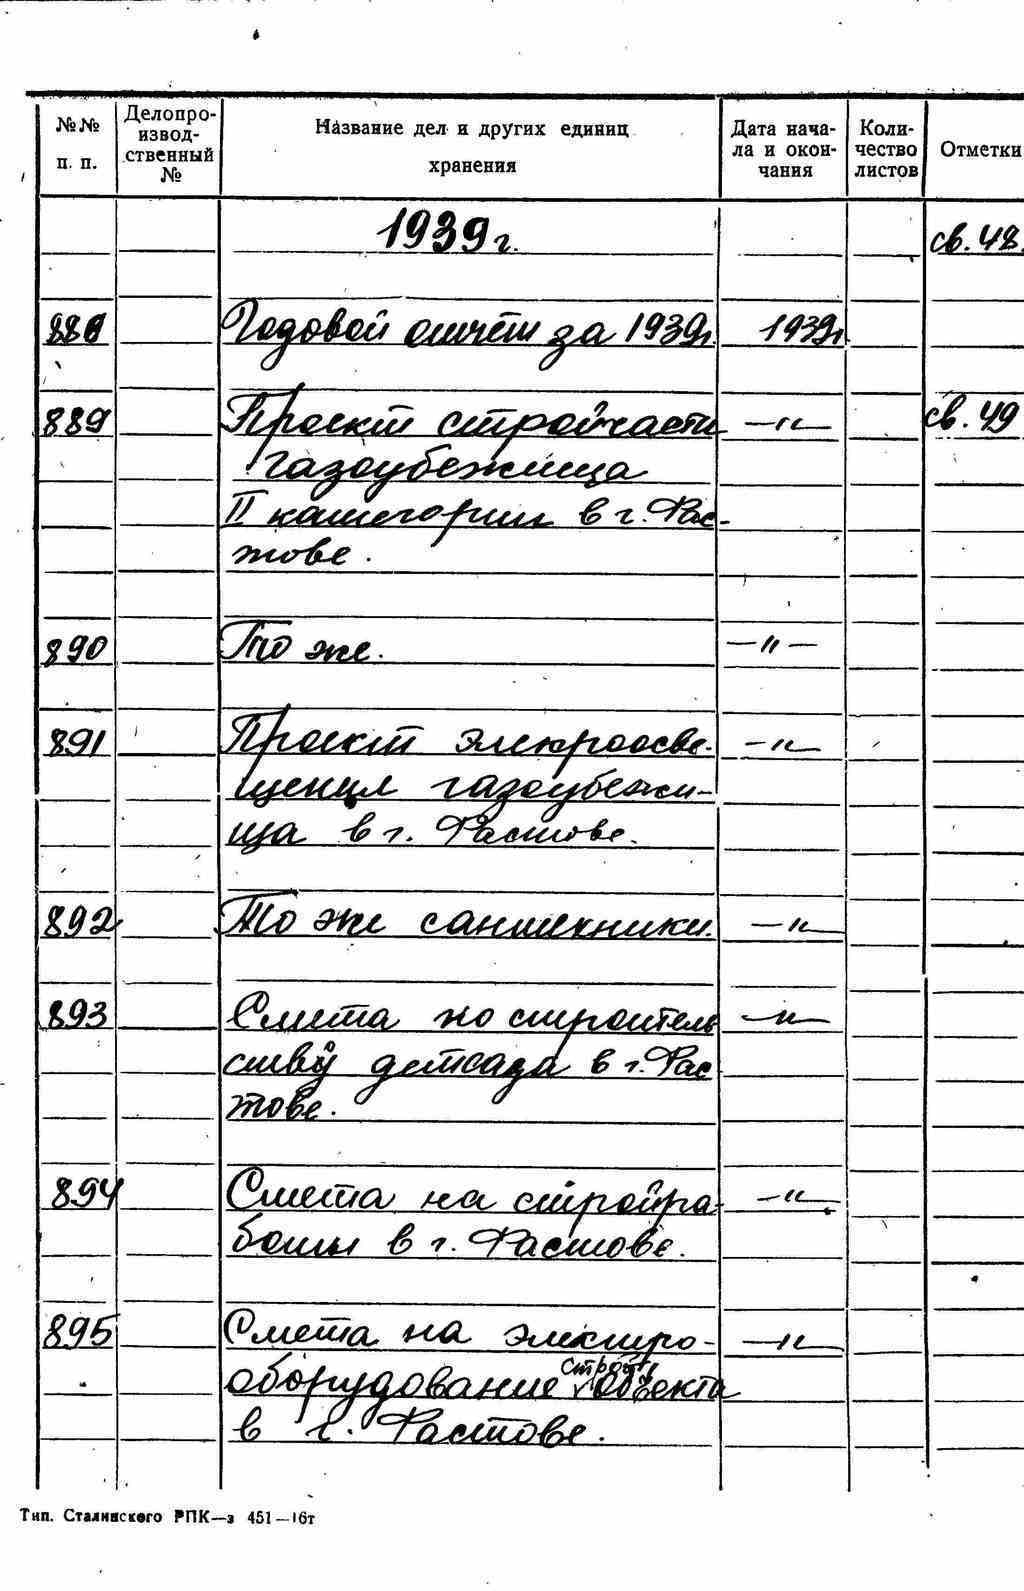 №№ п. п. Делопроизводственный № Название дел и других единиц хранения Дата начала и окончания Количество листов Отметки
1939 г. св. 48.
888 Годовой отчёт за 1939г. 1939г.
889 Проект стройчасти —"— св. 49
газоубежища
II категории в г. Фас-
тове.
890 То же. —"—
891 Проект элекроосве-
щения газоубежи-
ща в г. Фастове.
892 То же сантехники. —"—
893 Смета по строитель —"—
ству детсада в г. Фас
тове.
894 Смета на стройра- —"—
боты в г. Фастове.
895 Смета на электро- —"—
оборудование строй объекта
в г. Фастове.
Тип. Сталинского РПК—з 451—16т